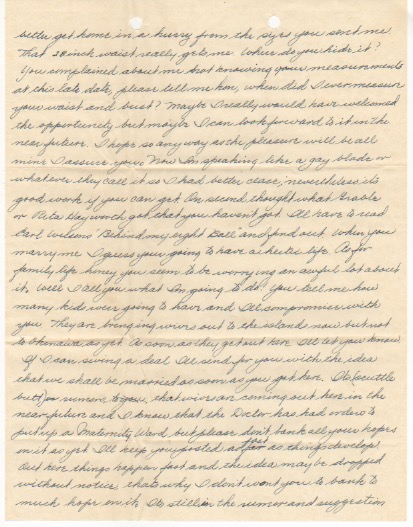 better get home in a hurry from the sizes you sent me.
That 28 inch waist really gets me. Where do you hide it?
You complained about me not knowing your measurements
at this late date, please tell me hon, when did I ever measure
your waist and bust? Maybe I really would have welcomed
the opportunity but maybe I can look forward to it in the
near future. I hope so anyway as the pleasure will be all
mine I assure you. Now I'm speaking like a gay blade or
whatever they call it so I had better close, nevertheless its
good work if you can get. On second thought what Grable
or Rita Hayworth got that you haven't got. I'll have to read
Earl Wilsons "Behind my eight Ball" and find out. When you
marry me I guess your going to have a hectic life. As for
family life honey you seem to be worrying an awful lot about
it. Well I tell you what I'm going to do. You tell me how
many kids were going to have and I'll compromise with
you. They are bringing wives out to the islands now but not
to Okinawa as yet. As soon as they get out here I'll let you know.
If I can swing a deal I'll send for you with the idea
that we shall be married as soon as you get here. Its scuttle
butt, or rumors to you, that wives are coming out here in the
near future and I know that the Doctor has had orders to
put up a Maternity Ward but please don't bank all your hopes
on it as yet. I'll keep you posted as fast as things develop.
Out here things happen fast and the idea may be dropped
without notice, thats why I don't want you to bank to
much hope on it. Its still in the rumor and suggestion